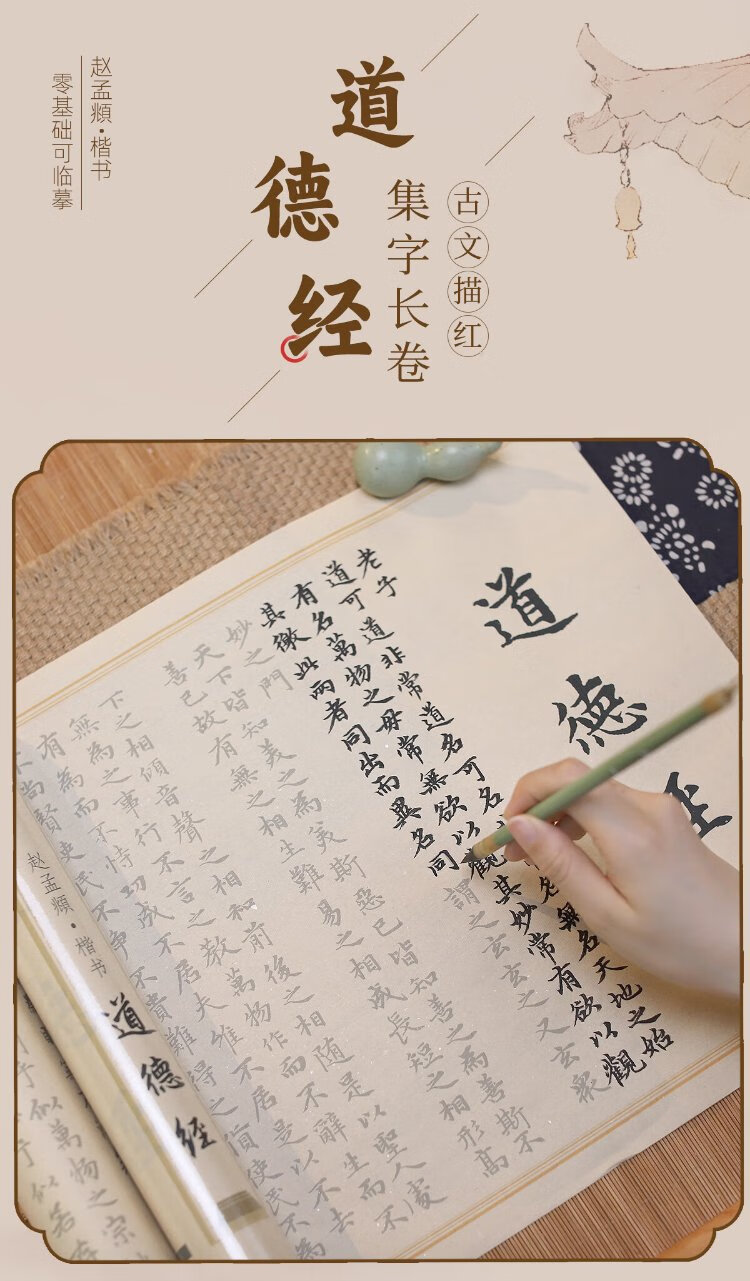 道德经
集字长卷
古文描红
赵孟頫·楷书
零基础可临摹
道德
老子
道可道非常道名可名
名無名天地之始
有名萬物之母常無欲以觀其妙常有欲以觀
其徼此兩者同出而異名同謂之玄玄之又玄衆
妙之門
天下皆知美之為美斯惡已皆知善之為善斯不
善已故有無之相生難易之相成長短之相形高
下之相傾音聲之相和前後之相随是以聖人處
無為之事行不言之教萬物作而不辭生而不
有為而不恃功成不居夫惟不居是以不去
尚賢使民不争不貴難得之貨使民不為
赵孟頫·楷书
道德經
似萬物之宗